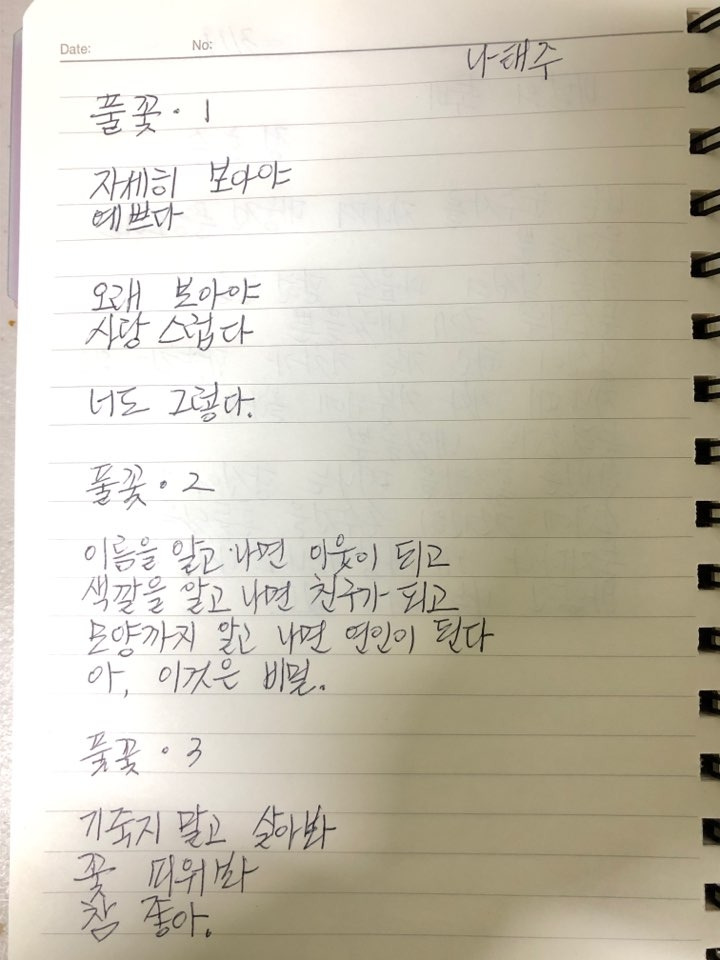 Date: No:
나태주
풀꽃 · 1
자세히 보아야
예쁘다
오래 보아야
사랑스럽다
너도 그렇다.
풀꽃 · 2
이름을 알고 나면 이웃이 되고
색깔을 알고 나면 친구가 되고
모양까지 알고 나면 연인이 된다
아, 이것은 비밀.
풀꽃 · 3
기죽지 말고 살아봐
꽃 피워봐
참 좋아.